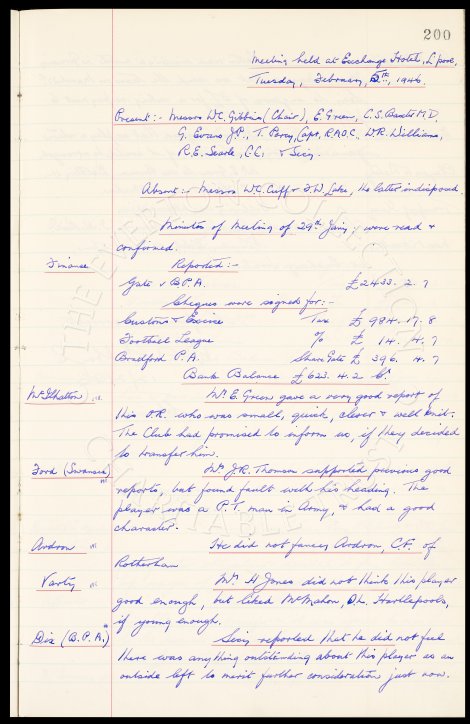 200
Meeting held at Exchange Hotel, L'pool,
Tuesday, February, 5th, 1946.
Present :- Messrs W.C. Gibbins (Chair), E. Green, C.S. Baxter M.D.
G. Evans J.P., T. Percy, Capt. R.A.O.C., W.R. Williams,
R.E. Searle, C.C. & Secy.
Absent :- Messrs W.C. Cuff & F.W. Lake, the latter indisposed.
Minutes of Meeting of 29th Jany, were read &
confirmed.
Finance Reported :-
Gate v B.P.A. £2433. 2. 7
Cheques were signed for :-
Customs & Excise Tax £ 984. 17. 8
Football League % £ 14. 4. 7
Bradford P.A. Share Gate £ 396. 4. 7
Bank Balance £623. 4. 2 Cr.
McIlhatton Mr E. Green gave a very good report of
this O.R. who was small, quick, clever & well knit.
The Club had promised to inform us, if they decided
to transfer him.
Ford (Swansea) Mr J.R. Thomson supported previous good
reports, but found fault with his heading. The
player was a P.T. man in Army, & had a good
character.
Ardron He did not fancy Ardron, C.F. of
Rotherham
Varty Mr H. Jones did not think this player
good enough, but liked McMahon, O.L. Hartlepools,
if young enough.
Dix (B.P.A.) Secy reported that he did not feel
there was anything outstanding about this player as an
outside left to merit further consideration just now.